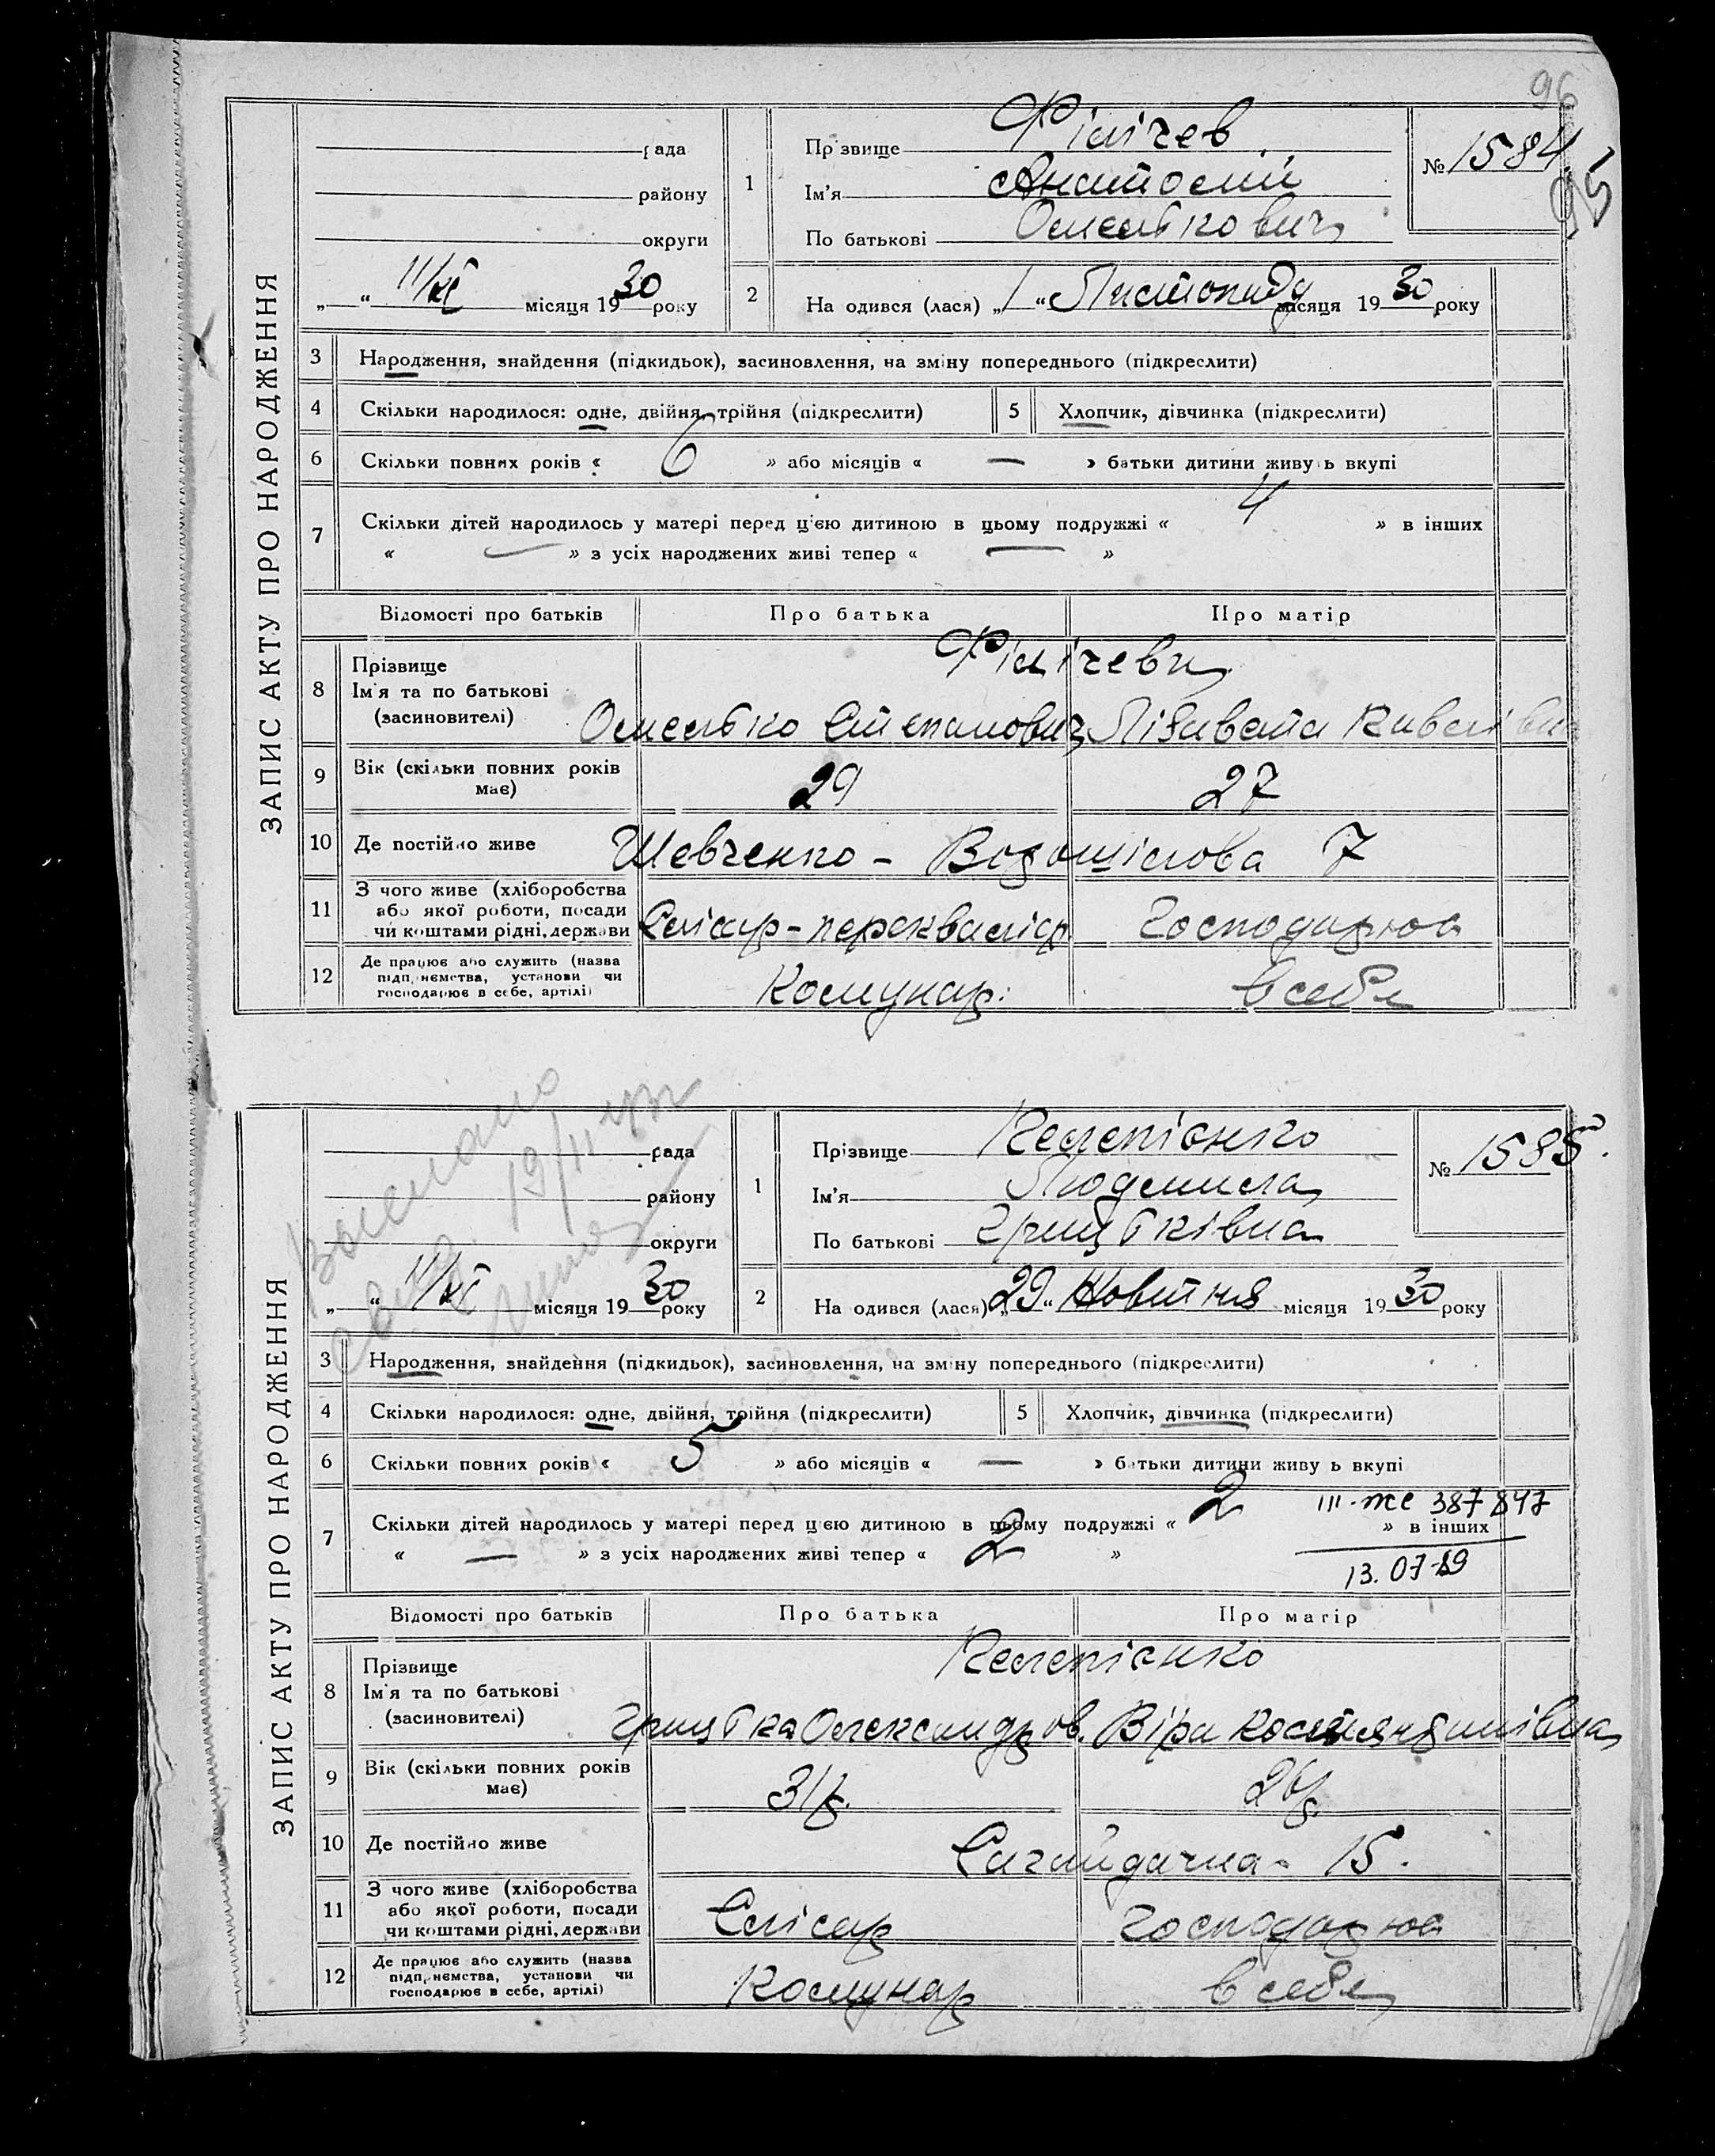 96
95
ЗАПИС АКТУ ПРО НАРОДЖЕННЯ
рада
району
округи
„ “ 11/XI місяця 1930 року
1 Прізвище Філічев
Ім'я Анатолій
По батькові Омелькович
№ 1584
2 На одився (лася) „1“ Листопаду місяця 1930 року
3 Народження, знайдення (підкидьок), засиновлення, на зміну попереднього (підкреслити)
4 Скільки народилося: одне, двійня, трійня (підкреслити) 5 Хлопчик, дівчинка (підкреслити)
6 Скільки повних років « 6 » або місяців « — » батьки дитини живуть вкупі
7 Скільки дітей народилось у матері перед цією дитиною в цьому подружжі « 4 » в інших
« — » з усіх народжених живі тепер « — »
Відомості про батьків Про батька Про матір
8 Прізвище
Ім'я та по батькові
(засиновителі)
Філічеви
Омелько Степанович Лізавета
9 Вік (скільки повних років має) 29 27
10 Де постійно живе Шевченко - 7
11 З чого живе (хліборобства
або якої роботи, посади
чи коштами рідні, держави
Слісар - Господарює
12 Де працює або служить (назва
підприємства, установи чи
господарює в себе, артілі)
Комунар. в себе
19/II
ЗАПИС АКТУ ПРО НАРОДЖЕННЯ
рада
району
округи
„ “ 11/XI місяця 1930 року
1 Прізвище Келепієнко
Ім'я Людмила
По батькові Грицьківна
№ 1585.
2 На одився (лася) „29“ Жовтня місяця 1930 року
3 Народження, знайдення (підкидьок), засиновлення, на зміну попереднього (підкреслити)
4 Скільки народилося: одне, двійня, трійня (підкреслити) 5 Хлопчик, дівчинка (підкреслити)
6 Скільки повних років « 5 » або місяців « — » батьки дитини живуть вкупі
III-же 387847
7 Скільки дітей народилось у матері перед цією дитиною в цьому подружжі « 2 » в інших
« — » з усіх народжених живі тепер « 2 »
13.07.89
Відомості про батьків Про батька Про матір
8 Прізвище
Ім'я та по батькові
(засиновителі)
Келепієнко
Грицька Олександров. Віра Костянтинівна
9 Вік (скільки повних років має) 31 р. 26 р.
10 Де постійно живе Сагайдачна - 15.
11 З чого живе (хліборобства
або якої роботи, посади
чи коштами рідні, держави
Слісар Господарює
12 Де працює або служить (назва
підприємства, установи чи
господарює в себе, артілі)
Комунар в себе